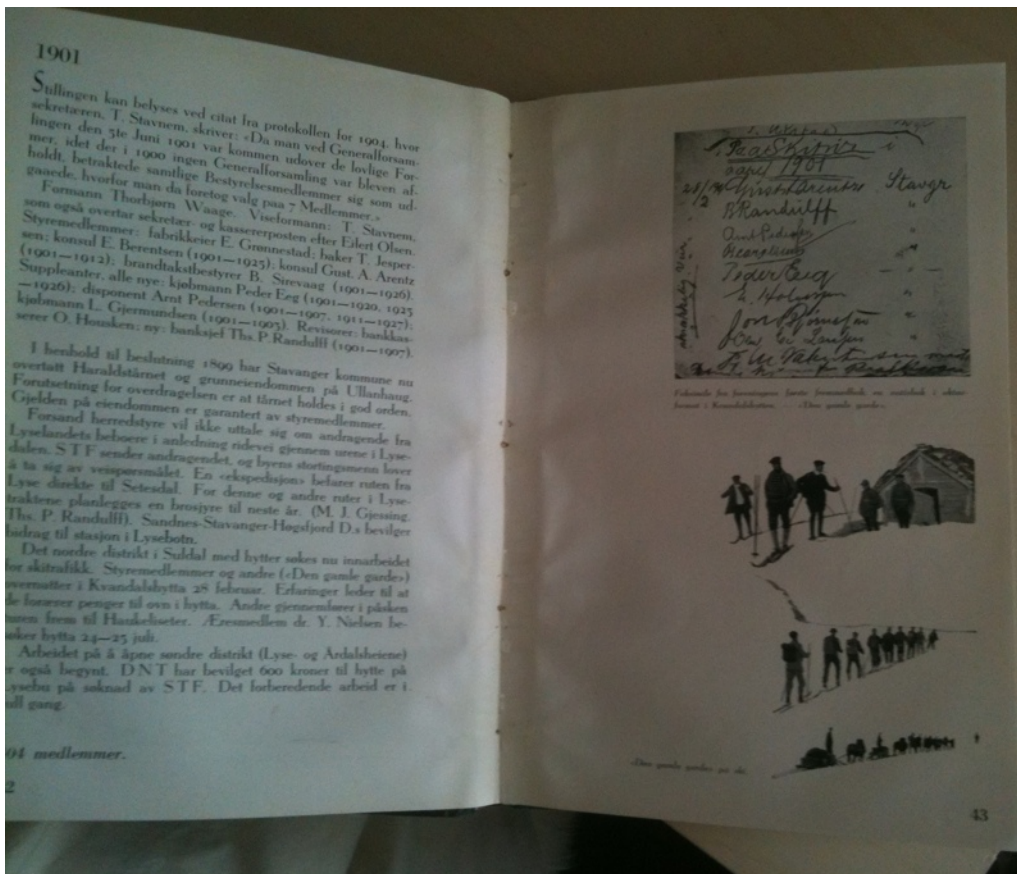 1901
Stillingen kan belyses ved citat fra protokollen for 1904, hvor
sekretæren, T. Stavnem, skriver: «Da man ved Generalforsam-
lingen den 5te Juni 1901 var kommen udover de lovlige For-
mer, idet der i 1900 ingen Generalforsamling var bleven af-
holdt, betraktede samtlige Bestyrelsesmedlemmer sig som ud-
gaaede, hvorfor man da foretog valg paa 7 Medlemmer.»
Formann Thorbjørn Waage. Viseformann: T. Stavnem,
som også overtar sekretær- og kassererposten efter Eilert Olsen.
Styremedlemmer: fabrikkeier E. Grønnestad; baker T. Jesper-
sen; konsul E. Berentsen (1901—1925); konsul Gust. A. Arentz
(1901—1912); brandtakstbestyrer B. Sirevaag (1901—1926).
Suppleanter, alle nye: kjøbmann Peder Eeg (1901—1920, 1925
—1926); disponent Arnt Pedersen (1901—1907, 1911—1927);
kjøbmann L. Gjermundsen (1901—1903). Revisorer: bankkas-
serer O. Housken; ny: banksjef Ths. P. Randulff (1901—1907).
I henhold til beslutning 1899 har Stavanger kommune nu
overtatt Haraldstårnet og grunneiendommen på Ullanhaug.
Forutsetning for overdragelsen er at tårnet holdes i god orden.
Gjelden på eiendommen er garantert av styremedlemmer.
Forsand herredstyre vil ikke uttale sig om andragende fra
Lyselandets beboere i anledning ridevei gjennem urene i Lyse-
dalen. STF sender andragendet, og byens stortingsmenn lover
å ta sig av veispørsmålet. En «ekspedisjon» befarer ruten fra
Lyse direkte til Setesdal. For denne og andre ruter i Lyse-
traktene planlegges en brosjyre til neste år. (M. J. Gjessing,
Ths. P. Randulff). Sandnes-Stavanger-Høgsfjord D.s bevilger
bidrag til stasjon i Lysebotn.
Det nordre distrikt i Suldal med hytter søkes nu innarbeidet
for skitrafikk. Styremedlemmer og andre («Den gamle garde»)
overnatter i Kvandalshytta 28 februar. Erfaringer leder til at
de forærer penger til ovn i hytta. Andre gjennemfører i påsken
turen frem til Haukeliseter. Æresmedlem dr. Y. Nielsen be-
søker hytta 24—25 juli.
Arbeidet på å åpne søndre distrikt (Lyse- og Årdalsheiene)
er også begynt. DNT har bevilget 600 kroner til hytte på
Lysebu på søknad av STF. Det forberedende arbeid er i
full gang.
04 medlemmer.
2
Paa Skitur i
1901
28/2 Arentz Stavgr
Randulff
Arnt Pedersen
Peder Eeg
Faksimile fra foreningens første fremmedbok, en notisbok i oktav-
format i Kvandalshytten. — «Den gamle garde».
«Den gamle garde» på ski.
43